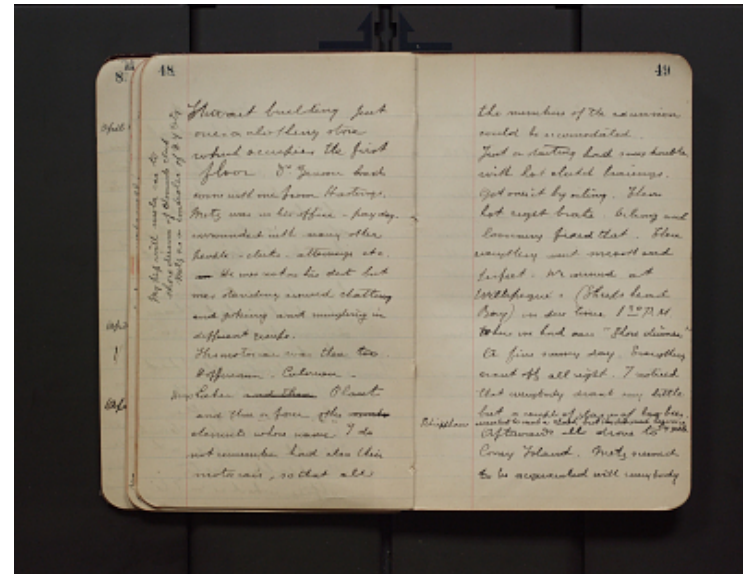 8
48
April
My trip with motor car to
shore dinner of Chemists club
Metz as a controller of N.Y. City
Stewart building just
over a clothing store
which occupies the first
floor Dr Grosvenor had
come with me from Hastings.
Metz was in his office - pay day.
surrounded with many other
people - clerks - attorneys etc.
He was not at his desk but
was standing around chatting
and joking and mingling in
different groups.
His motorcar was there too.
Hoffmann
Baker and then Plaut
and then a few other
chemists whose name I do
not remember had also their
motorcars, so that all
49
the members of the excursion
could be accomodated.
Just on starting had some trouble
with hot clutch bearings.
Got over it by oiling. Then
hot right brake. Oiling and
loosening fixed that. Then
everything went smooth and
perfect. We arrived at
(Sheepshead
Bay) in due time 1 30 P.M
where we had our "Shore dinner"
A fine sunny day. Everything
went off all right. I noticed
that everybody drank very little
but a couple of glasses of lager beer.
wanted to make a
Afterwards all drove to
Coney Island. Metz seemed
to be acquainted with everybody